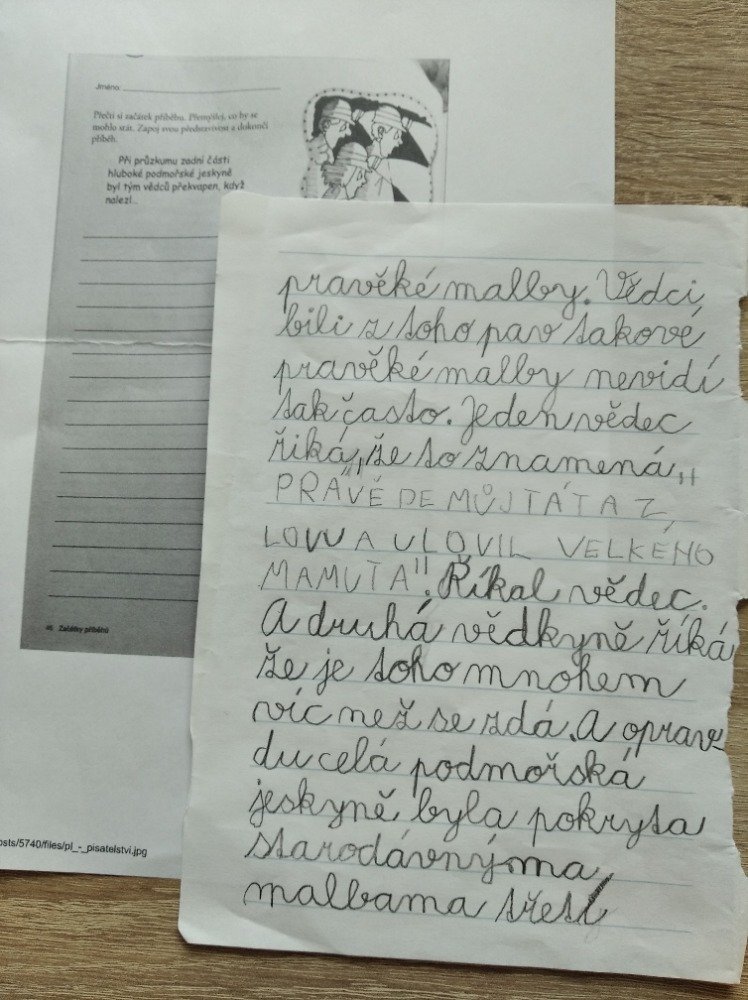 Jméno:
Přečti si začátek příběhu. Přemýšlej, co by se
mohlo stát. Zapoj svou představivost a dokonči
příběh.
Při průzkumu zadní části
hluboké podmořské jeskyně
byl tým vědců překvapen, když
nalezl...
46 Začátky příběhů
osts/5740/files/pl_-_pisatelstvi.jpg
pravěké malby. Vědci
bili z toho pav takové
pravěké malby nevidí
tak často. Jeden vědec
řiká„že to znamená„
PRÁVĚ DE MŮJ TÁTA Z
LOVU A ULOVIL VELKÉHO
MAMUTA". Říkal vědec.
A druhá vědkyně říká
že je toho mnohem
víc než se zdá. A oprav-
du celá podmořská
jeskyně byla pokryta
starodávnýma
malbama třetí